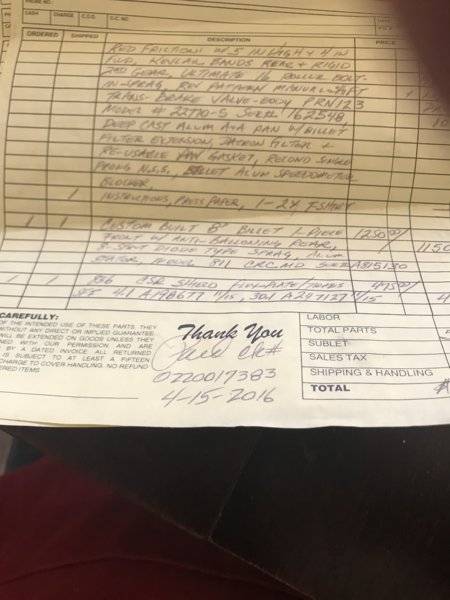 PHONE NO.
CASH CHARGE C.O.D.
ORDERED SHIPPED DESCRIPTION PRICE
RED FRICTIONS W/ 5 IN HIGH & 4 IN
FWD, KEVLAR BANDS REAR & RIGID
2ND GEAR, ULTIMATE 16 ROLLER BOLT-
IN-SPRAG, REV PATTERN MANUAL-SHIFT
TRANS-BRAKE VALVE-BODY, PRN123
MODEL # 22710-5 162548,
DEEP CAST ALUM PAN W/ BILLET
FILTER EXTENSION, DACRON FILTER &
RE-USABLE PAN GASKET,
N.S.S., BILLET ALUM SPEEDOMETER
BLOCKER,
1 INSTRUCTIONS, PRESS PAPER, 1-2X T-SHIRT
1 1 CUSTOM BUILT 8" BILLET 1-PIECE 1250 00/ 1150
FRONT W/ ANTI-BALLOONING REAR,
DIODE TYPE SPRAG, ALUM
STATOR, MODEL 811 CRC.MD A815130
1 1 CSR SHIELD FLEX-PLATE 475 00/ 4
SFI 4.1 30.1
CAREFULLY:
OF THE INTENDED USE OF THESE PARTS, THEY
WITHOUT ANY DIRECT OR IMPLIED GUARANTEE.
WILL BE EXTENDED ON GOODS UNLESS THEY
NED WITH OUR PERMISSION AND ARE
BY A DATED INVOICE. ALL RETURNED
IS SUBJECT TO AT LEAST A FIFTEEN
CHARGE TO COVER HANDLING. NO REFUND
RED ITEMS
Thank You
Paid ck#
0220017383
4-15-2016
LABOR
TOTAL PARTS
SUBLET
SALES TAX
SHIPPING & HANDLING
TOTAL